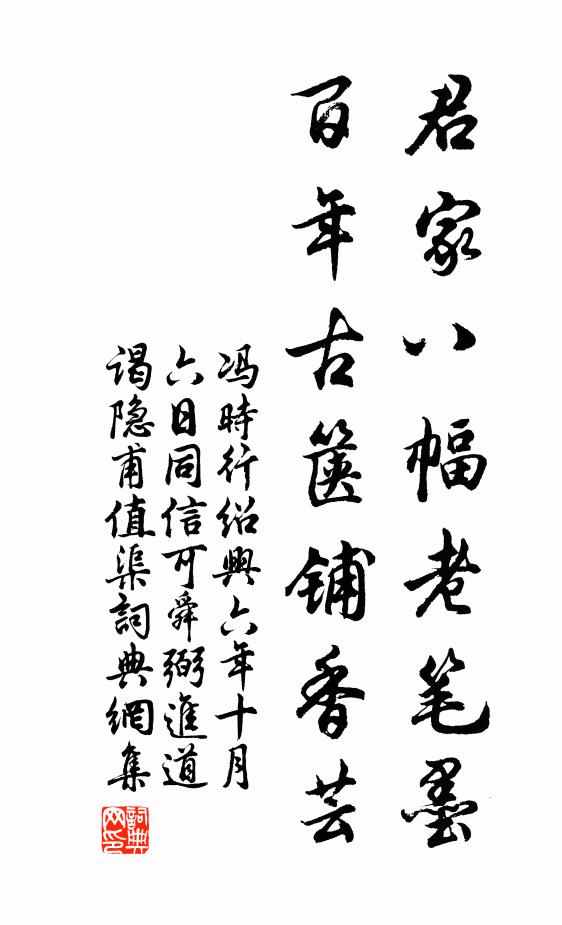 君家八幅老笔墨
百年古箧铺香芸
冯時行绍興六年十月
六日同信可舜弼進道
谒隐甫值渠詞典網集
詞典网印